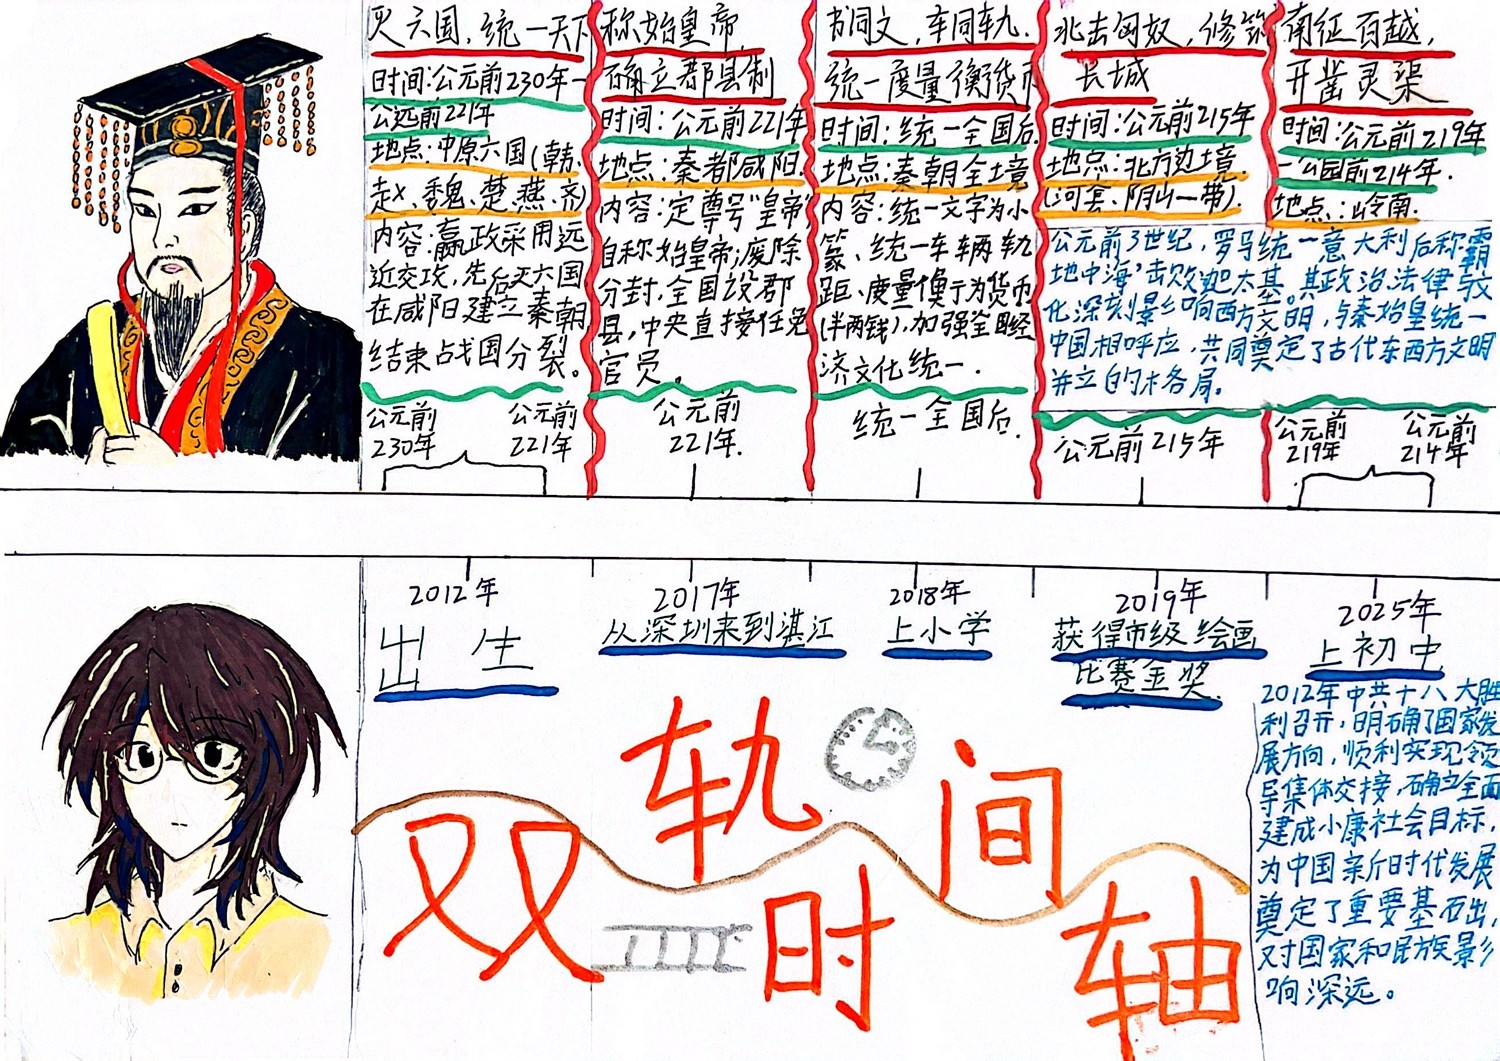 灭六国，统一天下
时间：公元前230年—
公远前221年
地点：中原六国（韩、
赵、魏、楚、燕、齐）
内容：嬴政采用远
近交攻，先后灭六国
在咸阳建立秦朝
结束战国分裂。
公元前
230年
公元前
221年
称始皇帝，
确立郡县制
时间：公元前221年
地点：秦都咸阳.
内容：定尊号"皇帝"，
自称始皇帝；废除
分封，全国设郡
县，中央直接任免
官员。
公元前
221年.
书同文，车同轨.
统一度量衡货币
时间：统一全国后.
地点：秦朝全境
内容：统一文字为小
篆、统一车辆轨
距、度量衡于为货币
(半两钱)，加强全国经
济文化统一.
统一全国后.
北击匈奴，修筑
长城
时间：公元前215年
地点：北方边境.
(河套、阴山一带).
公元前215年
南征百越，
开凿灵渠
时间：公元前219年
—公园前214年.
地点：岭南.
公元前
219年
公元前
214年
公元前3世纪，罗马统一意大利后称霸
地中海，击败迦太基。其政治、法律、文
化深刻影响西方文明，与秦始皇统一
中国相呼应，共同奠定了古代东西方文明
并立的格局。
2012年
出 生
2017年
从深圳来到湛江
2018年
上小学
2019年
获得市级绘画
比赛金奖.
2025年
上初中
2012年中共十八大胜
利召开，明确了国家发
展方向，顺利实现领
导集体交接，确立全面
建成小康社会目标，
为中国新时代发展
奠定了重要基石出，
对国家和民族影
响深远。
双轨时间轴